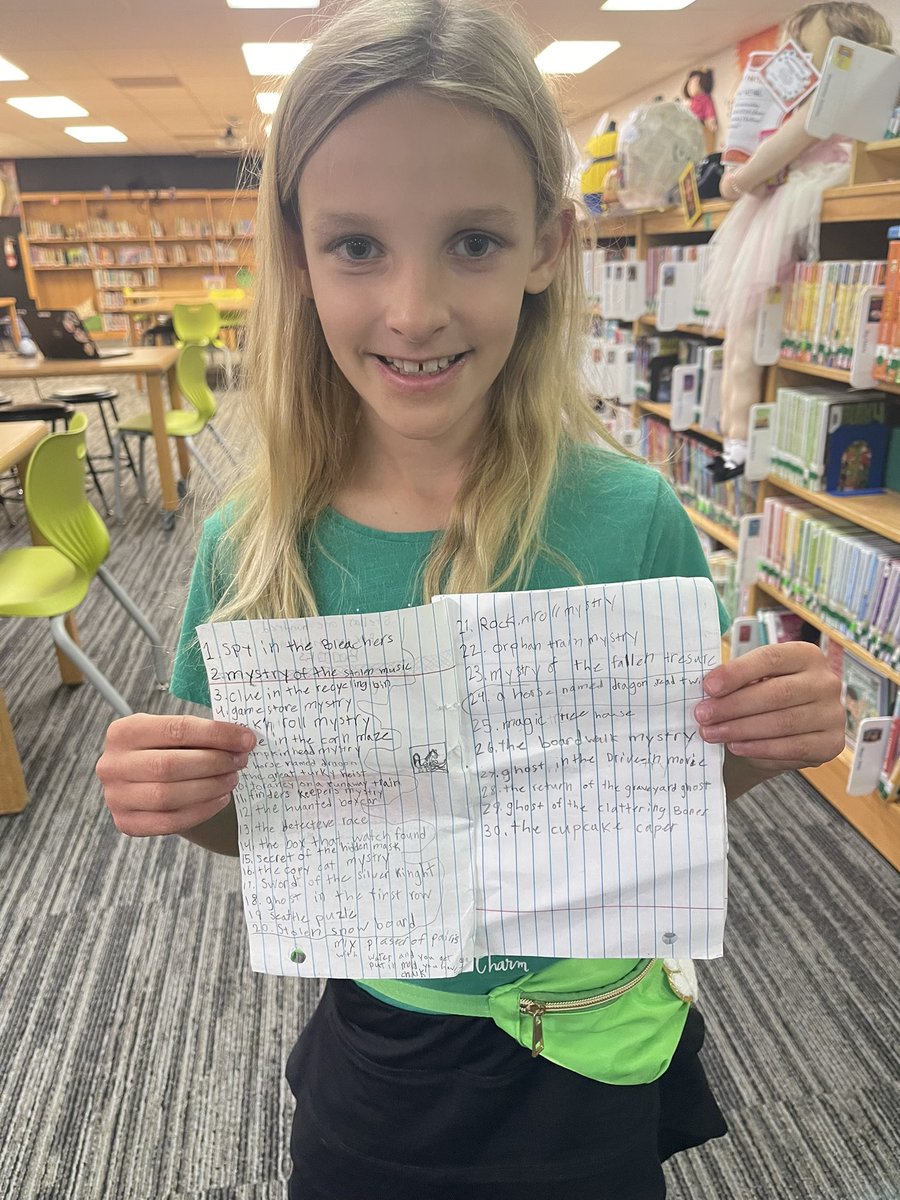 1. Spy in the Bleachers
2. mystry of the stolen music
3. clue in the recycling bin
4. game store mystry
k'n roll mystry
e in the corn maze
pumpkin head mystry
horse named dragon
the great turky heist
Janey on a runaway train
11. finders keepers mystry
12. the hunted boxcar
13. the detecteve race
14. the box that watch found
15. secret of the hidden mask
16. the copy cat mystry
17. Sword of the silver kinght
18. ghost in the first row
19. Seattle puzle
20. Stolen snow board
mix plaser of pairis
with water and you get
put in mold you have
chalk
21. Rock n roll mystry
22. orphan train mystry
23. mystry of the fallen tresure
24. a horse named dragon
25. magic tree house
26. the boardwalk mystry
27. ghost in the Drive-in movie
28. the return of the graveyard ghost
29. ghost of the clattering Bones
30. the cupcake caper
Charm